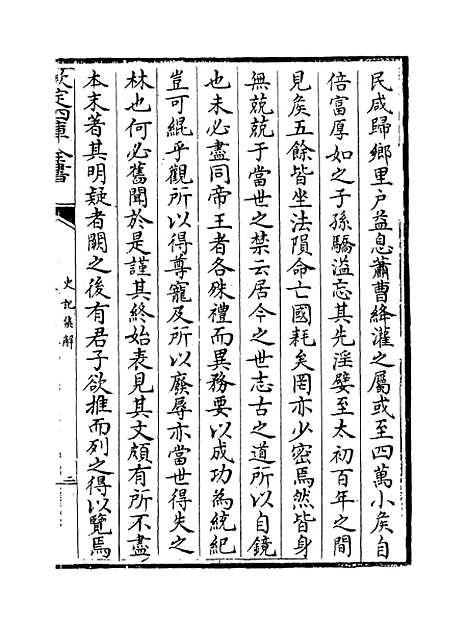 民咸歸鄉里户益息蕭曹絳灌之屬或至四萬小矦自
倍富厚如之子孫驕溢忘其先淫嬖至太初百年之間
見矦五餘皆坐法隕命亡國耗矣罔亦少密焉然皆身
無兢兢于當世之禁云居今之世志古之道所以自鏡
也未必盡同帝王者各殊禮而異務要以成功為統紀
豈可緄乎觀所以得尊寵及所以廢辱亦當世得失之
林也何必舊聞於是謹其終始表見其文頗有所不盡
本末著其明疑者闕之後有君子欲推而列之得以覽焉
欽定四庫全書
史記集解
二